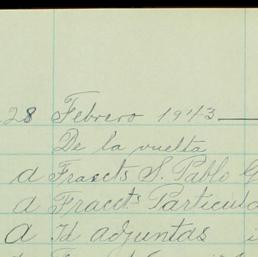 28 Febrero 1943
De la vuelta
a Fraccts S. Pablo G
a Fraccts Particula
a Id adjuntas i